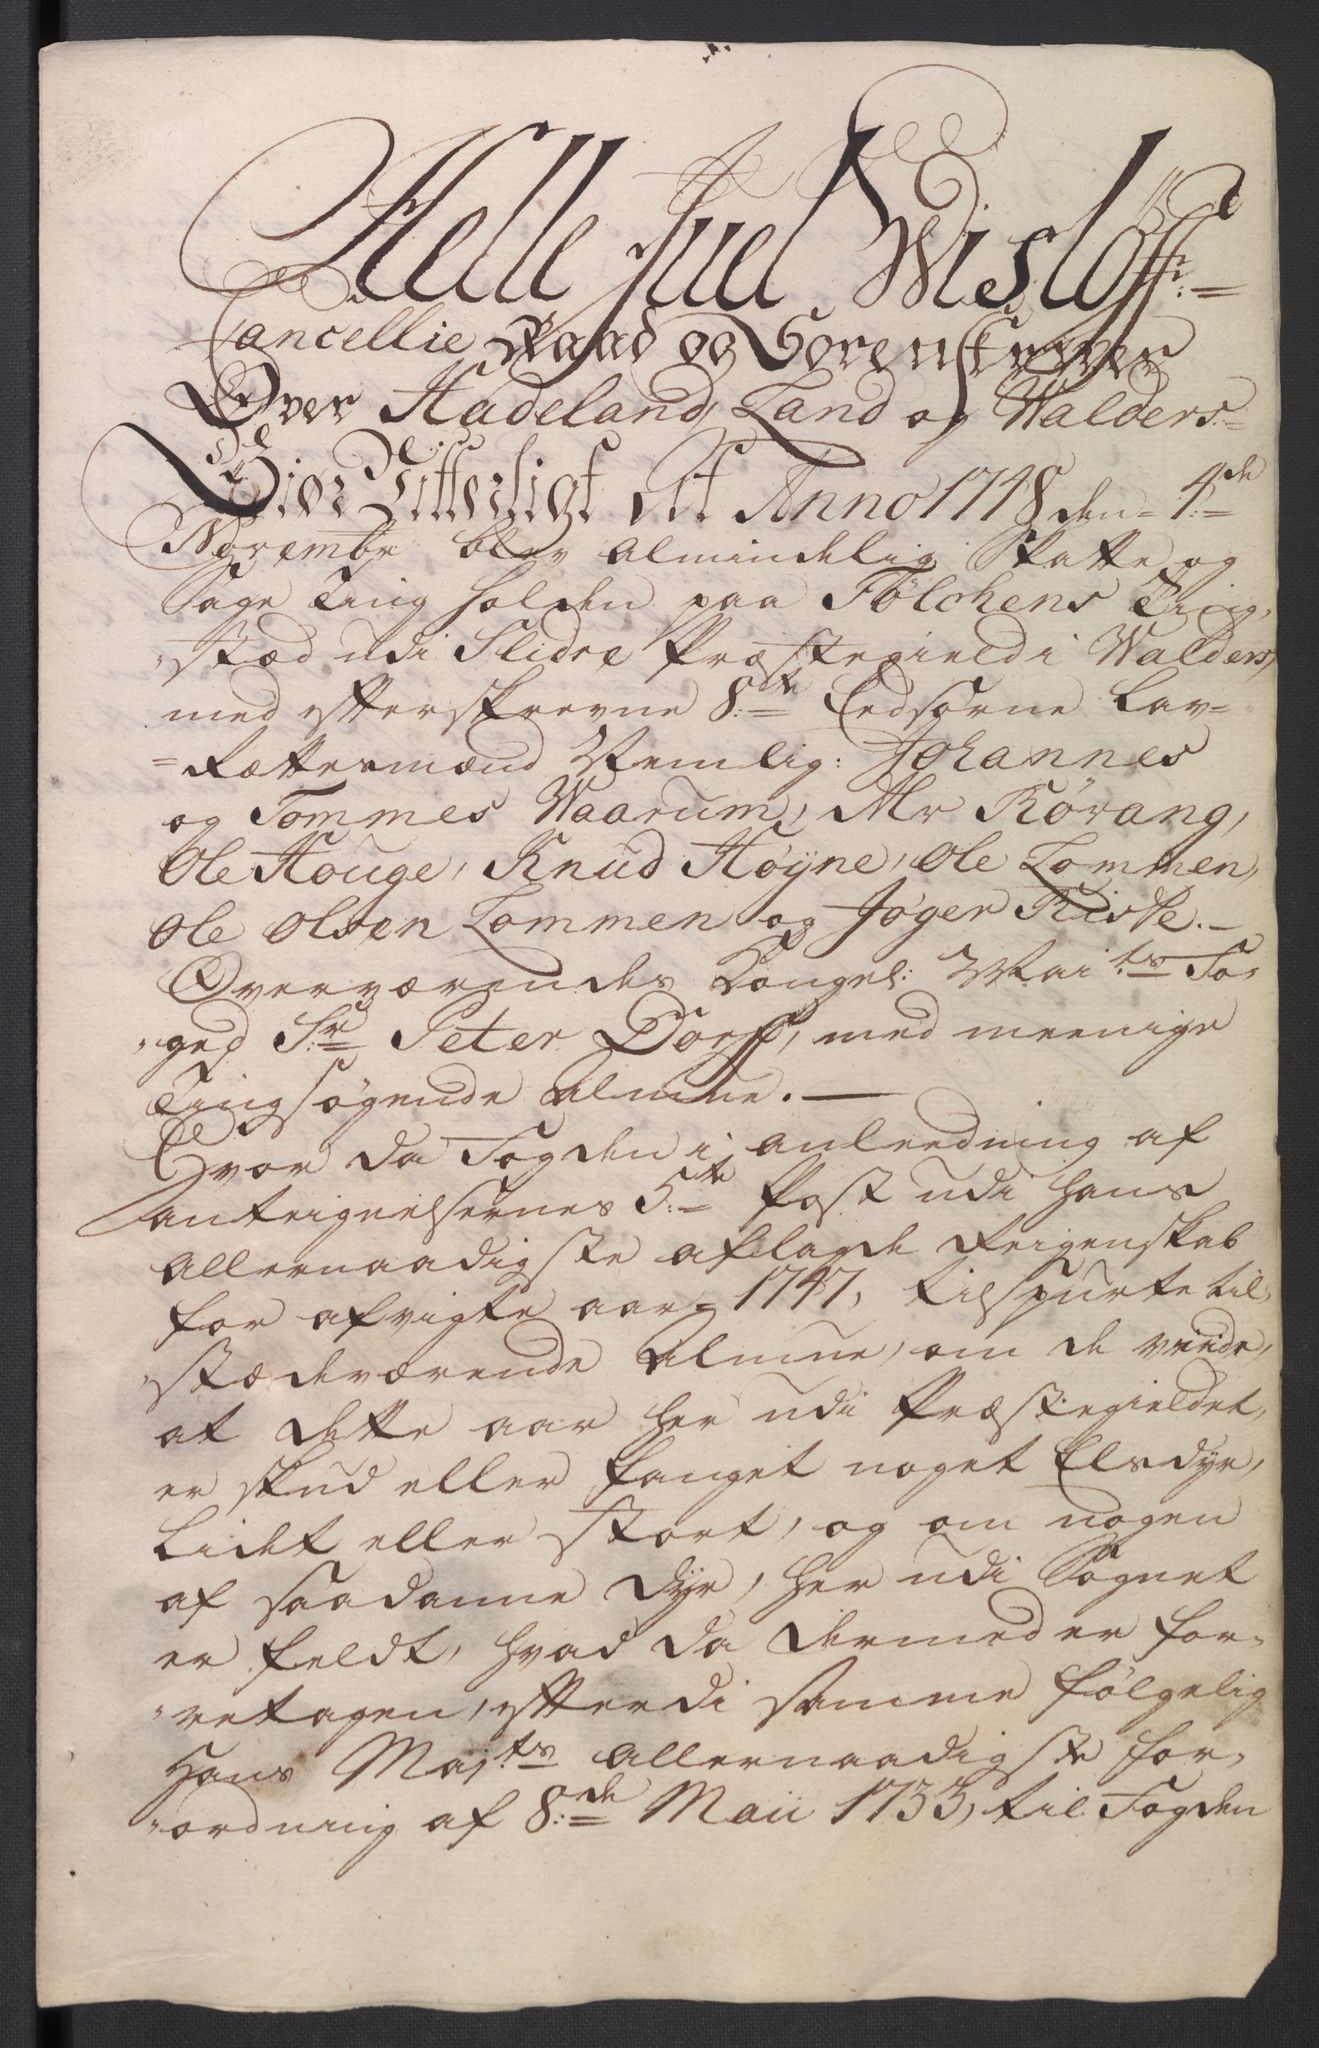 Helle Juel Wisløff
Cancellie Raad og Sorenskriver
Over Hadeland, Land og Walders
Giør Vitterligt At Anno 1748 den 4de
Novembr blev almindelig Skatte og
Sage Ting holden paa Følchens Ting,
„stæd udi Slidre Præstegield i Walders,
med efterskrevne 8te Eedsorne Lav-
=Rættesmænd Nemlig: Johannes
og Tommes Waarum, Ar Rørang,
Ole Houge, Knud Høyne, Ole Lommen,
Ole Olsen Lommen og Jøger Riste.-
Overværendes Kongel: Mai:ts Fo-
„ged Sr: Peter Dorff, med meenige
Tingsøgende Almue. —
Hvor da Fogden i anleedning af
Anteignelsernes 5te Post udi hans
allernaadigste aflagde Reigenskab
for afvigte aar 1747, tilspurte til,
„stædeværende Almue, om de viide,
at dette aar her udi Præstegieldet,
er skud eller fanget noget Elsdyr,
Lidet eller stort, og om nogen
af saadanne dyr, her udi Sognet
er feldt, hvad da dermed er for-
„retagen, efterdi samme følgelig
Hans Maj:ts allernaadigste for-
„ordning af 8:de Maii 1733, til Fogden